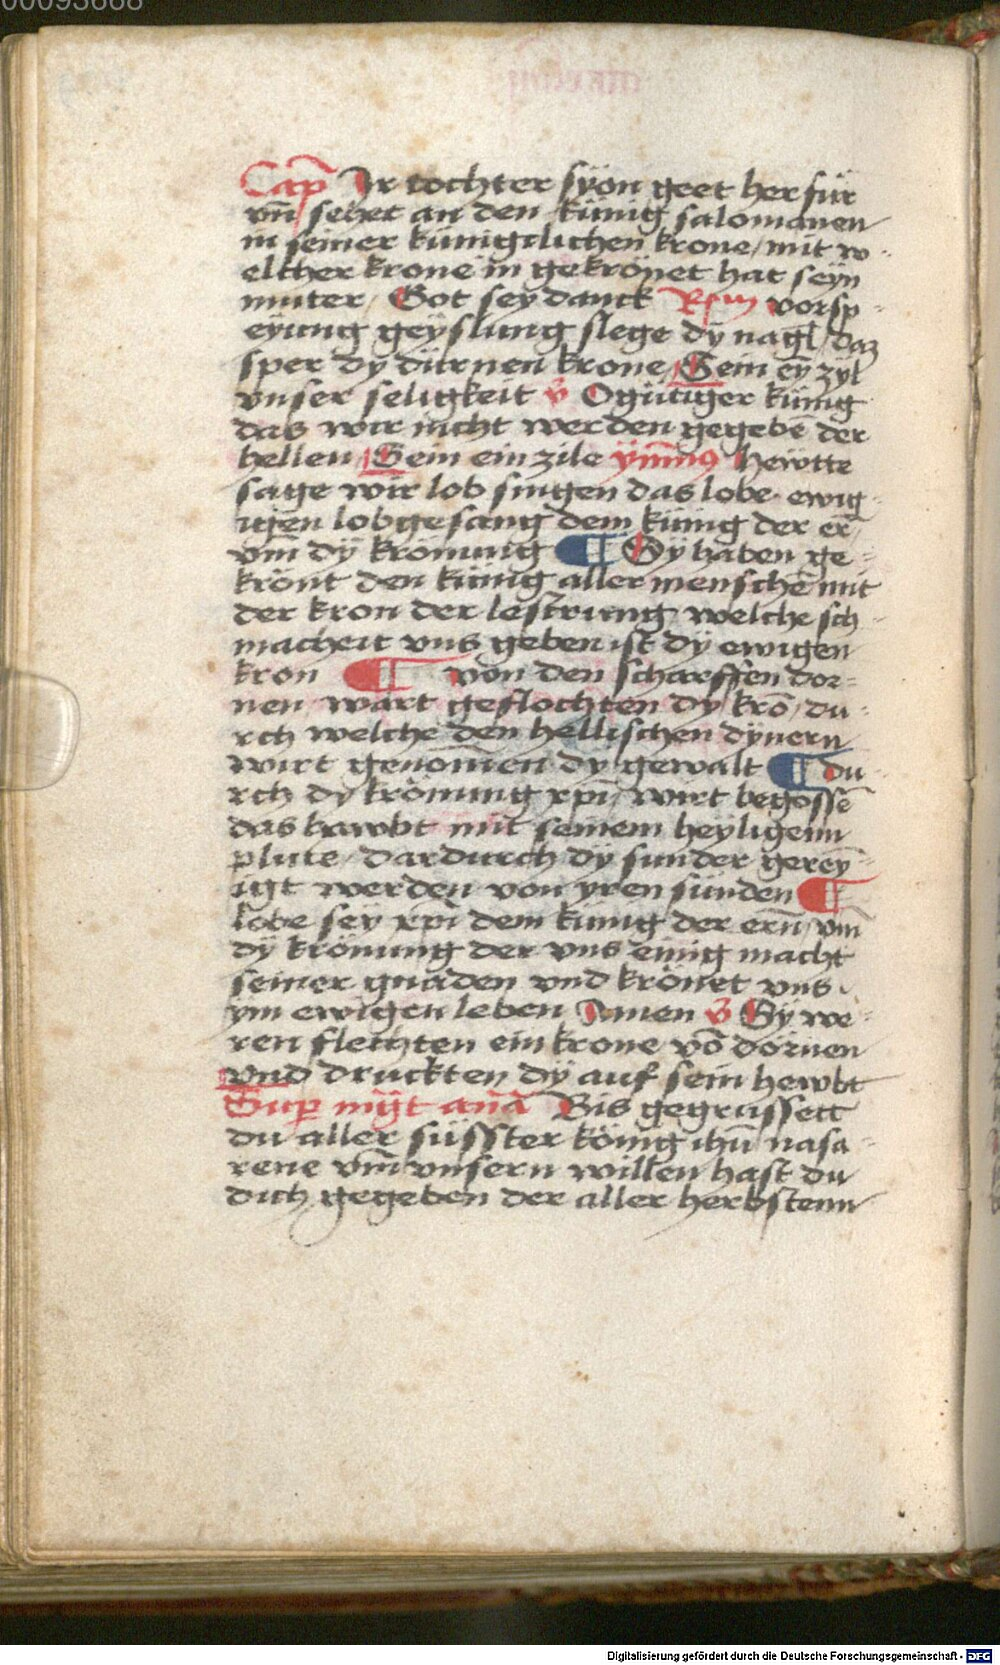 00093668
Cap̄ Ir tochter sÿon geet her für
vn̄ sehet an den künig salomonen
in seiner künigclichen krone / mit w-
elcher krone in gekrönet hat seyn
muter / Got sey danck Rspm vorsp-
eyung geyslung slege dy nagl / daz
sper dy dürnen krone / Sein ey zyl
vnser seligkeit v O gütiger künig
das wir nicht werden gegebē der
hellen / Sein ein zile ym̄nꝰ hewtte
sage wir lob singen das lobe ewig-
igen lobgesang dem künig der er̄
vm̄ dÿ krönung ¶ Dÿ haben ge-
krönt den künig aller menschē mit
der kron der lestrung / welche sch-
macheit vns geben ist dÿ ewigen
kron ¶ von den scharffen dor-
nen wart geflochten dy krō / du-
rch welche den hellischen dÿnern
wirt genom̄en dy gewalt ¶ du-
rch dy krönung xp̄i / wirt begossē
das hawbt mit seinem heyligenn
plute / dardurch dÿ sunder gereÿ-
igt werden von yren sünden ¶
lobe sey xp̄i dem künig der ern̄ / vm̄
dÿ krönung der vns einig macht
seiner gnaden vnd krönet vns
ym ewigen leben Amen v Sÿ we-
ren flechten ein krone vō dörnen
vnd druckten dÿ auf sein hewbt
Sup̄ mg̅t an̄a Bis gegrussett
du aller süsster könig ihū nasa-
rene vm̄ vnsern willen hast du
dich gegeben der aller herbstenn
Digitalisierung gefördert durch die Deutsche Forschungsgemeinschaft - DFG